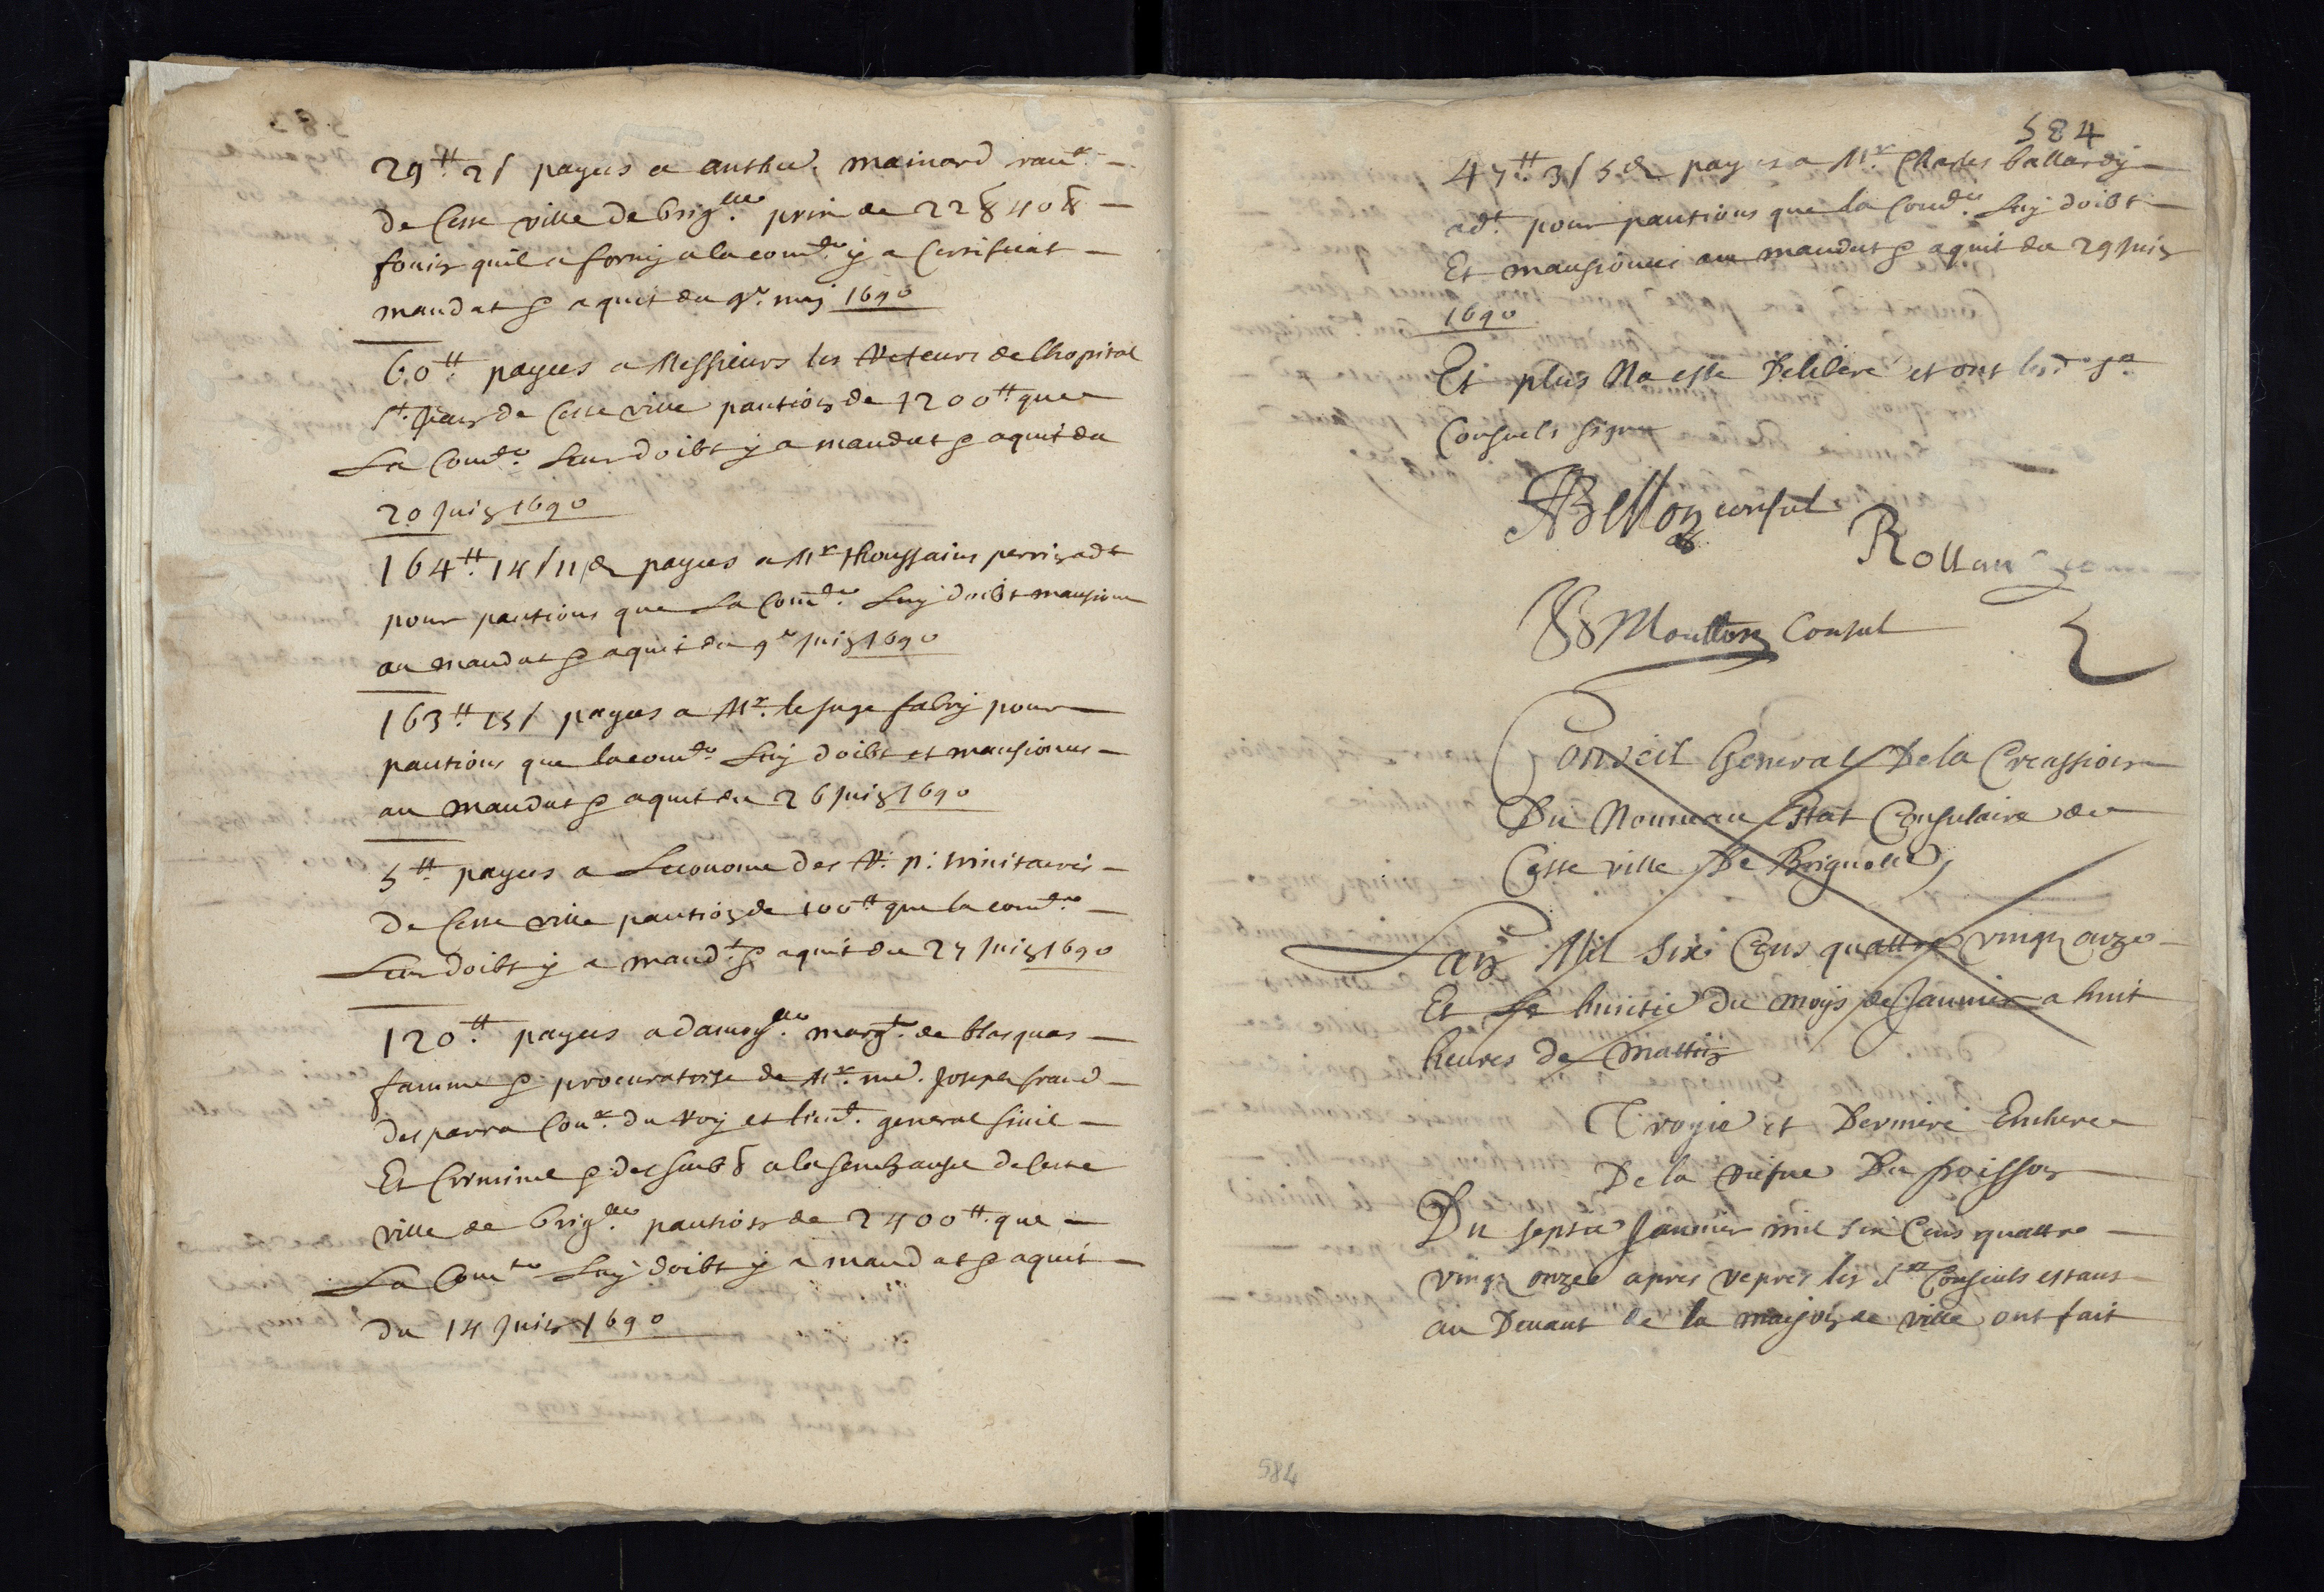 29tt 2s payees a anthoe. mainard
de Ceste ville de brig.lle prix de 22 q 40 q
fouin quil a forny a la com.te y a Certificat
mandat & aquit du 9e. may 1690
60tt payees a Messieurs les Reteurs de lhopital
St. Jean de Ceste ville pantion de 1200tt que
La Com.te Leur doibt y a mandat & aquit du
20 Juin 1690
164tt 14s 11d payees a Mr Thoussains perrin adt
pour pantions que La Com.te Luy doibt mansione
au mandat & aquit du 9e Juin 1690
163tt 15s payees a Mr. le juge fabry pour
pantions que la com.te Luy doibt et mansionees
au mandat & aquit du 26 Juin 1690
5tt payees a Leconome des R. p. trinitaires
de Ceste ville pantion de 100tt que la com.te
Leur doibt y a mand.t & aquit du 27 Juin 1690
120tt payees a damoys.lle marg.te de blasquas
famme & procuratrise de Mr. me. Joseph
desparra Con.er du Roy et lieut. general sivil
Et Criminel & des soub.s a la senechausee de ceste
ville de brig.lle pantion de 2400tt que
La Com.te Luy doibt y a mandat & aquit
du 14 Juin 1690
584
47tt 3s 5d payees a Mr. Charles ballardy
adt. pour pantions que la Com.te Luy doibt
Et mansionees au mandat & aquit du 29 Juin
1690
Et plus Na este Delibere et ont lesd. srs
Consuls signe
ABellon consul
Rollan
Moutton Consul
Conseil General De la Creassion
Du Nouveau Estat Consulaire de
Ceste ville De Brignolle
Lan Mil Six Cens quattre vingt onze
Et Le huitie du moys de Janvier a huit
heures de mattin
Troyie et Derniere Enchere
De la Reſve Du poisson
Du septie Janvier mil six Cens quattre
vingt onze apres vepres les srs Consuls estans
au Devant de la maison de ville ont fait
584